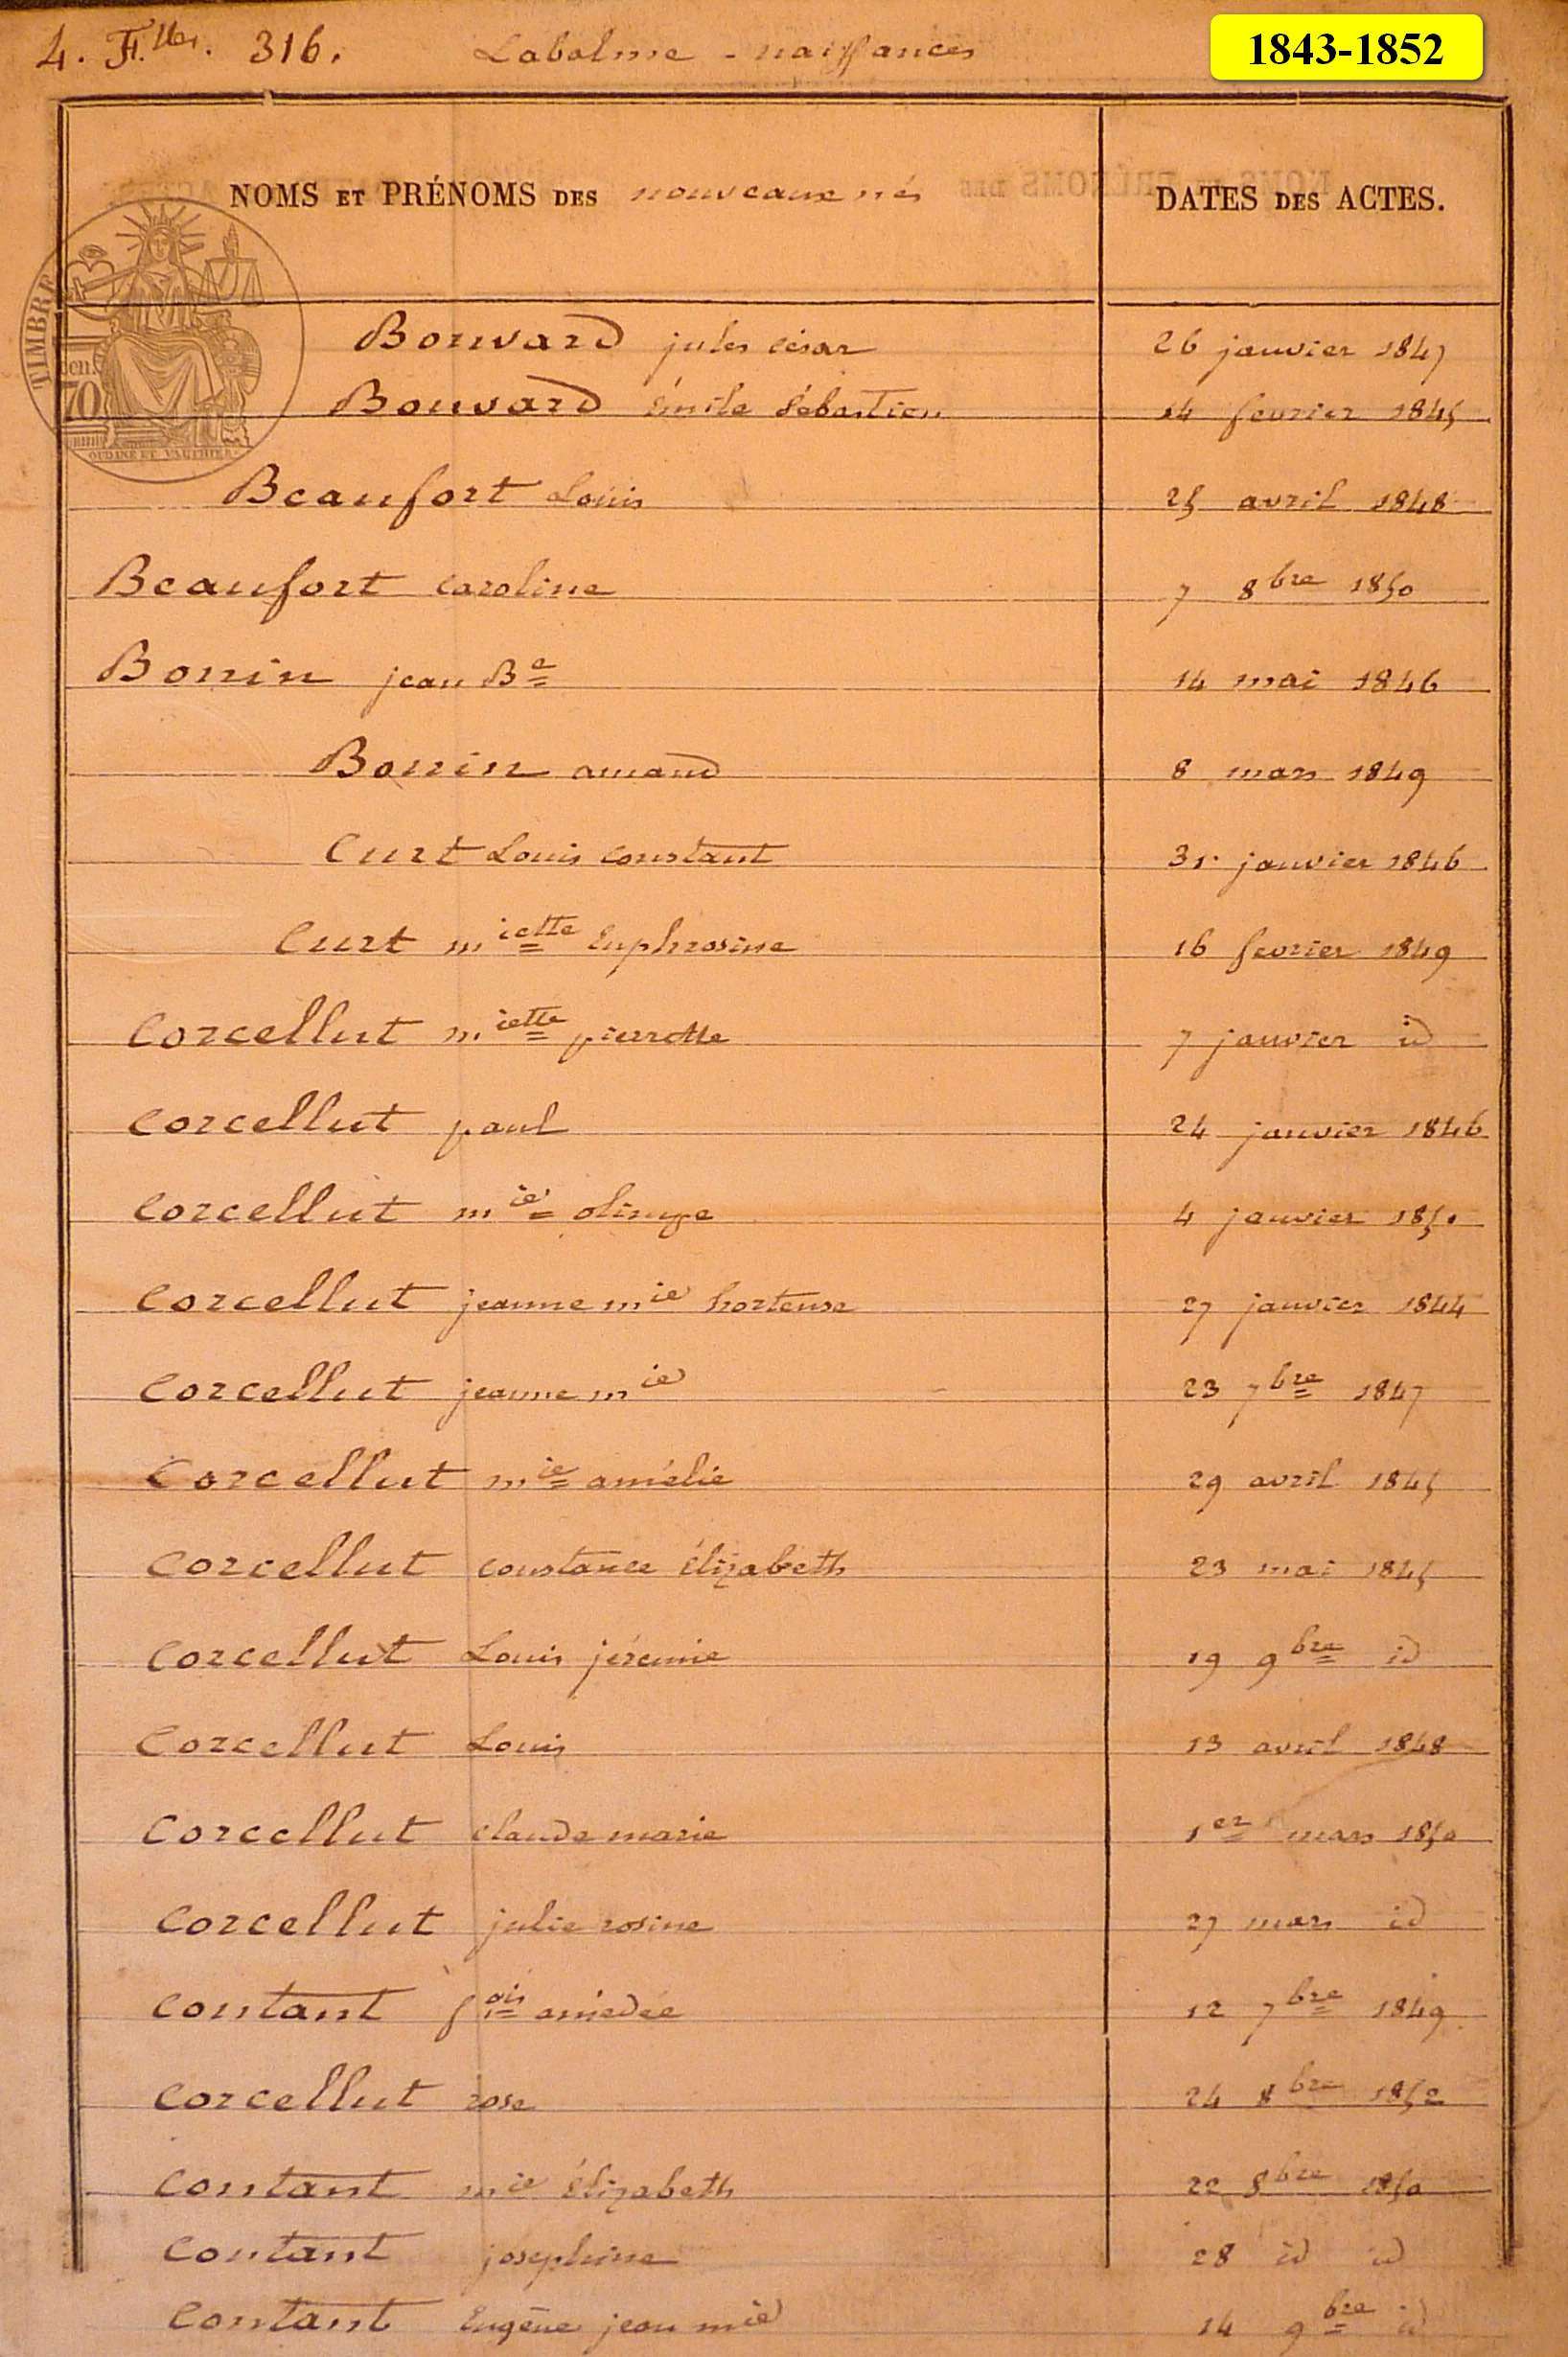 4. F.lles. 316. Labalme - naissances 1843-1852
NOMS ET PRÉNOMS DES nouveaux nés DATES DES ACTES.
TIMBRE
70
OUDINÉ ET VAUTHIER
Bouvard jules césar 26 janvier 1847
Bouvard émile Sébastien 14 fevrier 1845
Beaufort Louis 25 avril 1848
Beaufort caroline 7 8bre 1850
Bonin jean Bte 14 mai 1846
Bonin amand 8 mars 1849
Curt Louis constant 31 janvier 1846
Curt miette Euphrosine 16 fevrier 1849
Corcellut miette pierrette 7 janvier id
Corcellut paul 24 janvier 1846
Corcellut mie olimpe 4 janvier 1850
Corcellut jeanne mie hortense 27 janvier 1844
Corcellut jeanne mie 23 7bre 1847
Corcellut mie amélie 29 avril 1845
Corcellut constance élizabeth 23 mai 1845
Corcellut Louis jérémie 19 9bre id
Corcellut Louis 13 avril 1848
Corcellut claude marie 1er mars 1850
Corcellut julie rosine 27 mars id
Contant fois amédée 12 7bre 1849
Corcellut rose 24 8bre 1852
Contant mie élizabeth 22 8bre 1850
Contant josephine 28 id id
Contant Eugène jean mie 14 9bre id